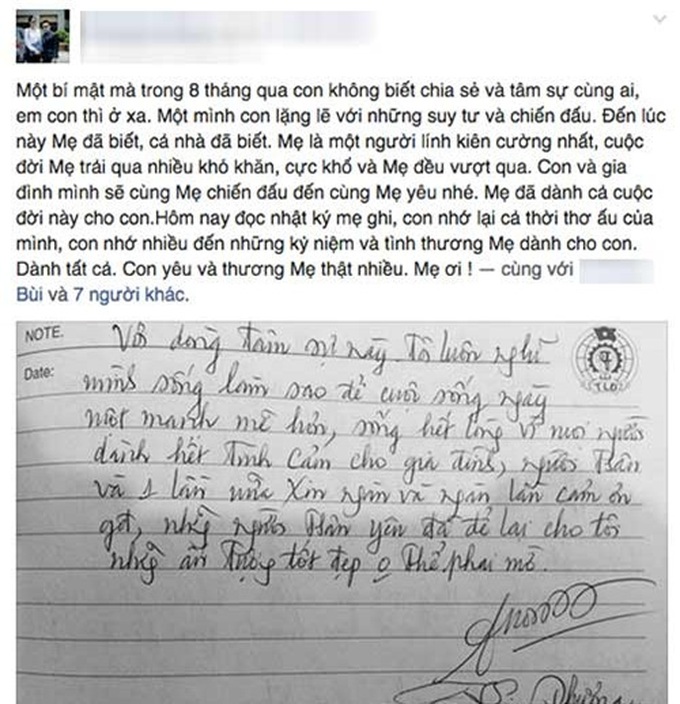 Một bí mật mà trong 8 tháng qua con không biết chia sẻ và tâm sự cùng ai,
em con thì ở xa. Một mình con lặng lẽ với những suy tư và chiến đấu. Đến lúc
này Mẹ đã biết, cả nhà đã biết. Mẹ là một người lính kiên cường nhất, cuộc
đời Mẹ trải qua nhiều khó khăn, cực khổ và Mẹ đều vượt qua. Con và gia
đình mình sẽ cùng Mẹ chiến đấu đến cùng Mẹ yêu nhé. Mẹ đã dành cả cuộc
đời này cho con.Hôm nay đọc nhật ký mẹ ghi, con nhớ lại cả thời thơ ấu của
mình, con nhớ nhiều đến những kỷ niệm và tình thương Mẹ dành cho con.
Dành tất cả. Con yêu và thương Mẹ thật nhiều. Mẹ ơi ! — cùng với
Bùi và 7 người khác.
NOTE. Vô dòng tâm sự này. Tôi luôn nghĩ
Date: mình sống làm sao để cuộc sống ngày
một mạnh mẽ hơn, sống hết lòng vì mọi người
dành hết tình cảm cho gia đình, người thân
và 1 lần nữa xin ngàn vạn ngàn lần cảm ơn
gđ, những người thân yêu đã để lại cho tôi
những ấn tượng tốt đẹp o thể phai mờ.
TLĐ